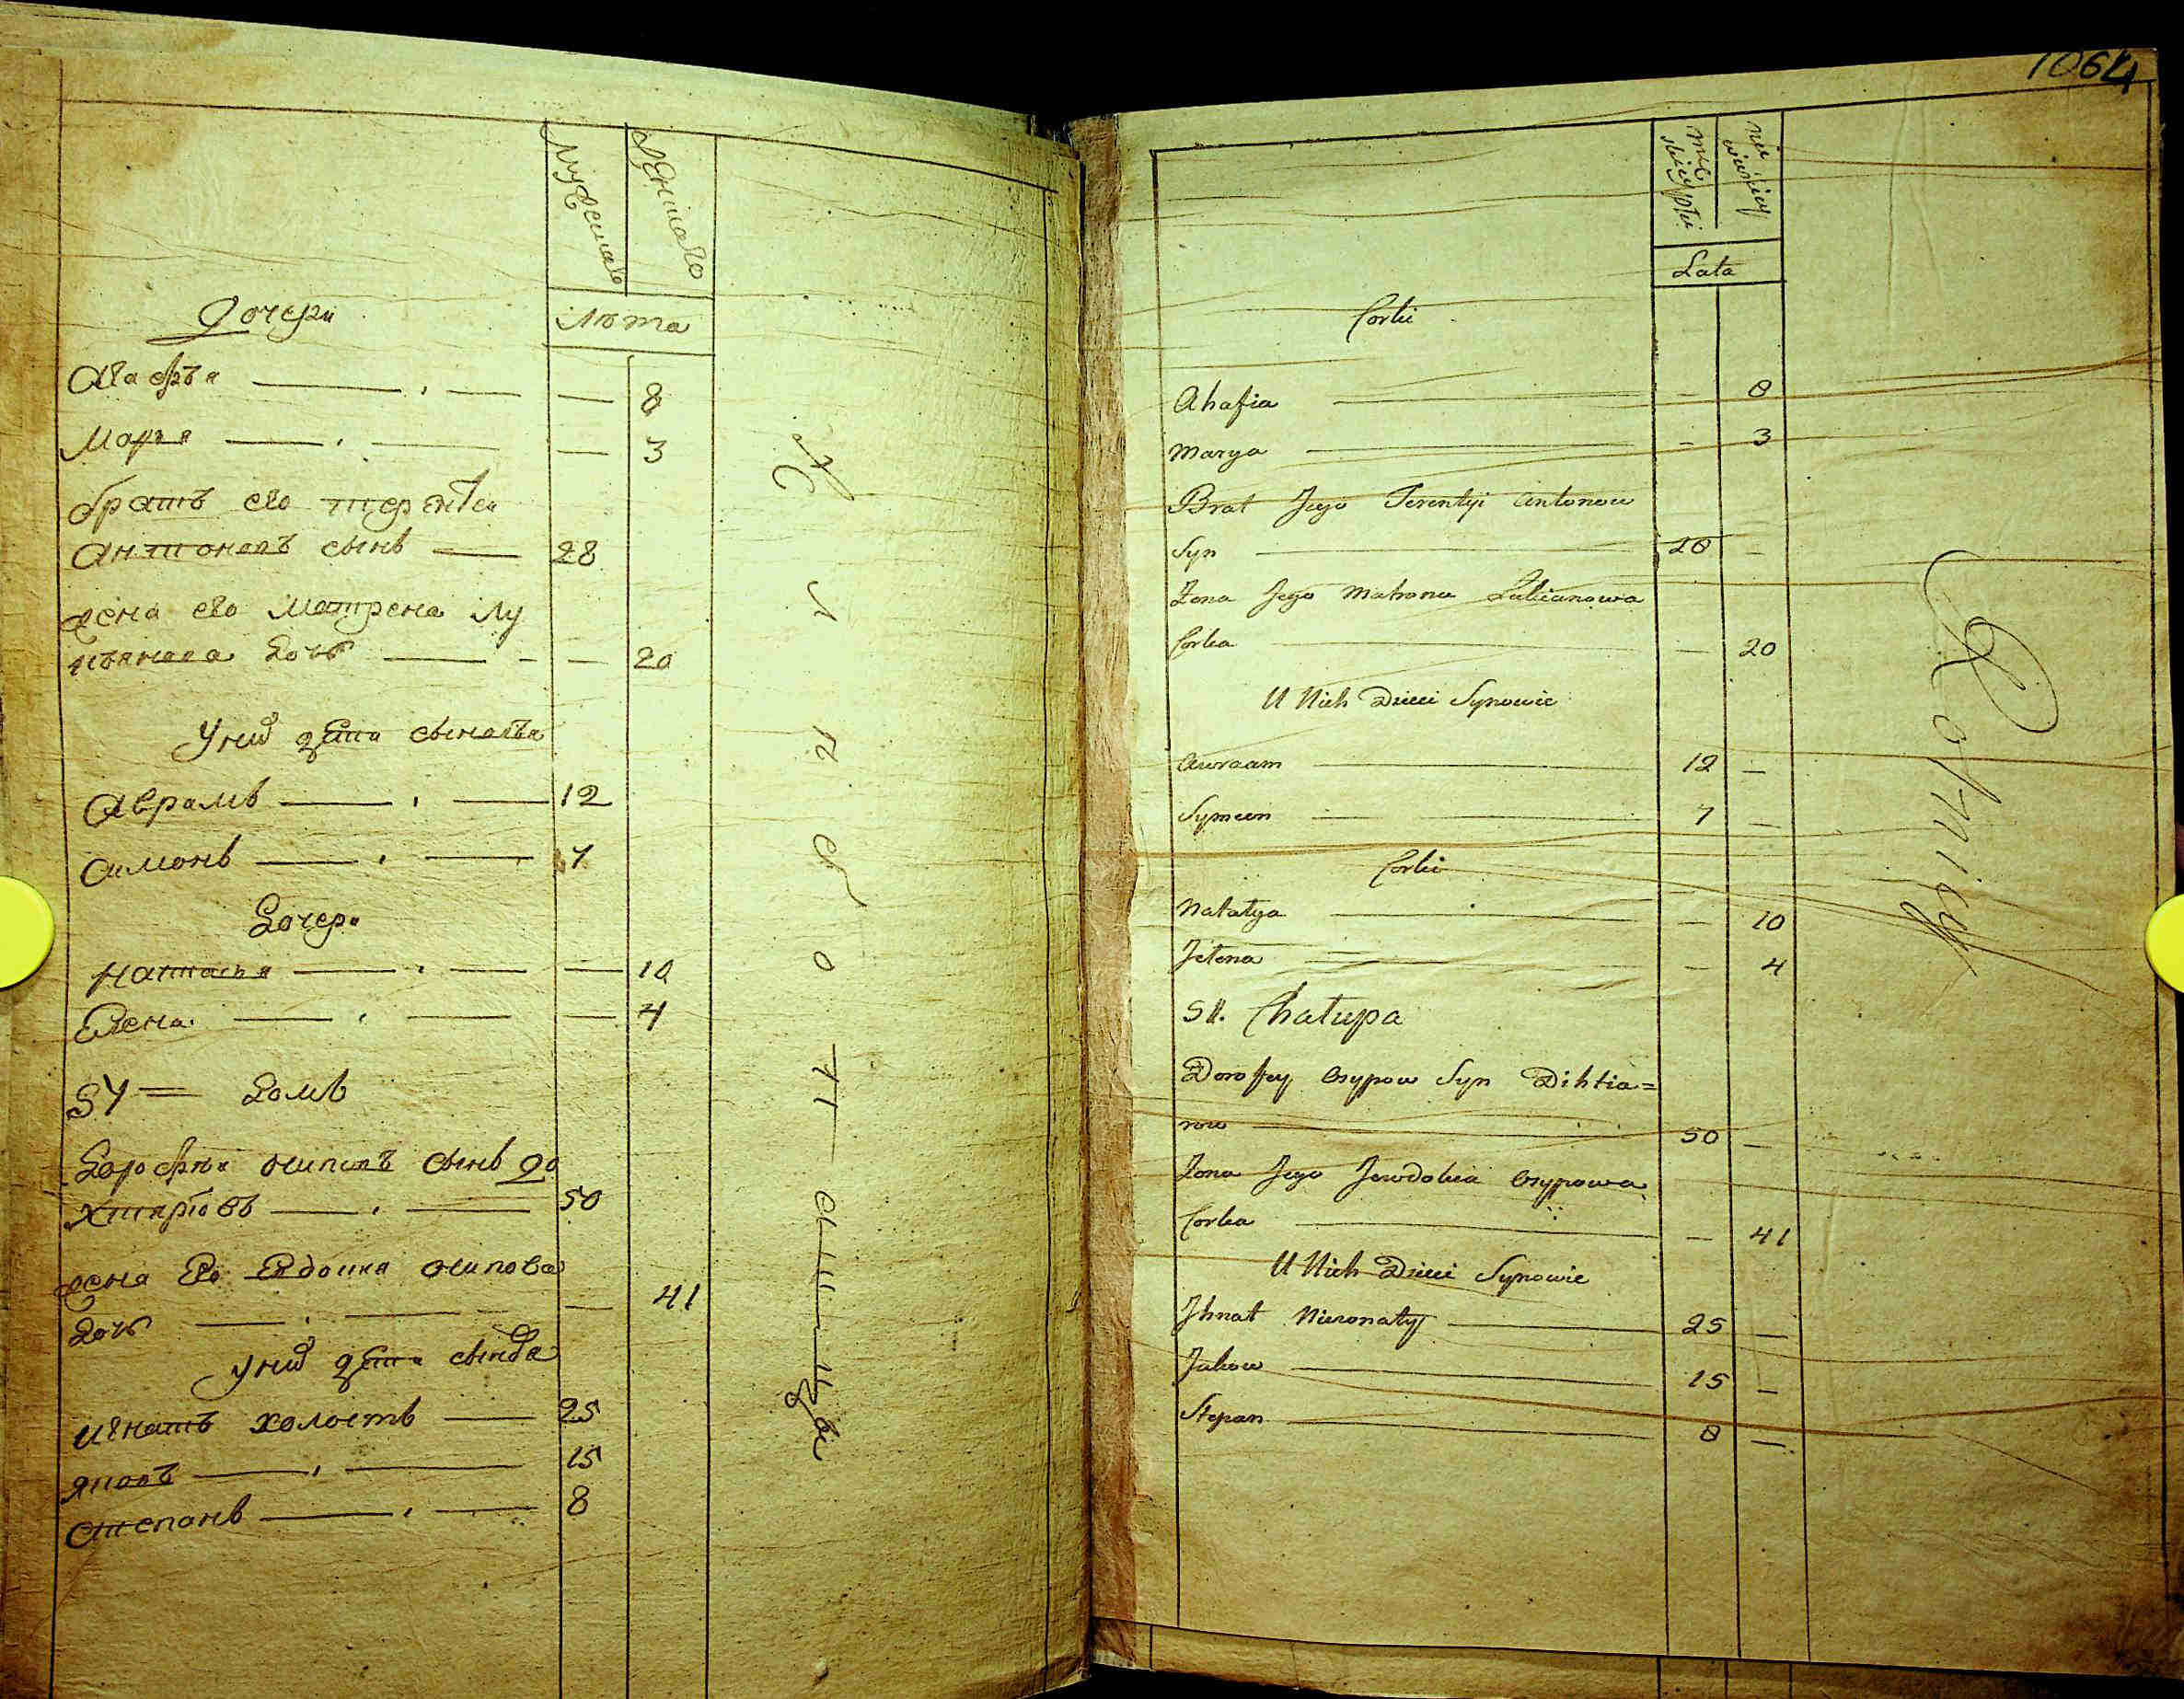 Мужеска
Женскаго
Лѣта
Дочери
Агафья 8
Марья 3
братъ его терентеи
Антоновъ сынъ 28
жена его Матрена Лу
кьянова дочь 20
У них дѣти сыновья
Аврамъ 12
Симонъ 7
дочери
Наталья 10
Елена 4
57 домъ
дорофеи осиповъ сынъ де
хтяровъ 50
жена Его Евдокия осипова
дочь 41
У них дѣти сыновья
игнатъ холостъ 25
яковъ 15
степанъ 8
Хлѣбопашцы
1064
Lata
Corki
Ahafia - 8
Marya - 3
Brat Jego Terentyi Antonow
Syn 28 -
Żona Jego Matrona Łukianowa
Corka - 20
U Nich Dzieci Synowie
Awraam 12 -
Symeon 7 -
Corki
Natalya - 10
Jelena - 4
57. Chałupa
Doroffey Osypow Syn Dihtia=
row 50 -
Żona Jego Jewdokia Osypowa
Corka - 41
U Nich Dzieci Synowie
Jhnat Nieżonaty 25 -
Jakow 15 -
Stepan 8 -
Rolnicy